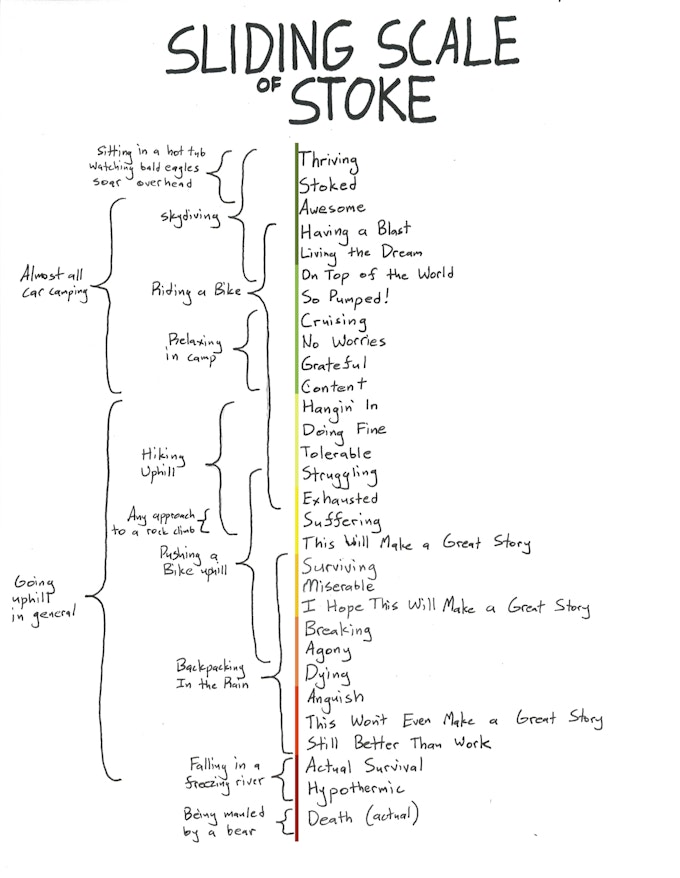 SLIDING SCALE
OF STOKE
Sitting in a hot tub
watching bald eagles
soar overhead
skydiving
Almost all
car camping
Riding a Bike
Relaxing
in camp
Hiking
Uphill
Any approach
to a rock climb
Pushing a
Bike uphill
Going
uphill
in general
Backpacking
In the Rain
Falling in a
freezing river
Being mauled
by a bear
Thriving
Stoked
Awesome
Having a Blast
Living the Dream
On Top of the World
So Pumped!
Cruising
No Worries
Grateful
Content
Hangin' In
Doing Fine
Tolerable
Struggling
Exhausted
Suffering
This Will Make a Great Story
Surviving
Miserable
I Hope This Will Make a Great Story
Breaking
Agony
Dying
Anguish
This Won't Even Make a Great Story
Still Better Than Work
Actual Survival
Hypothermic
Death (actual)